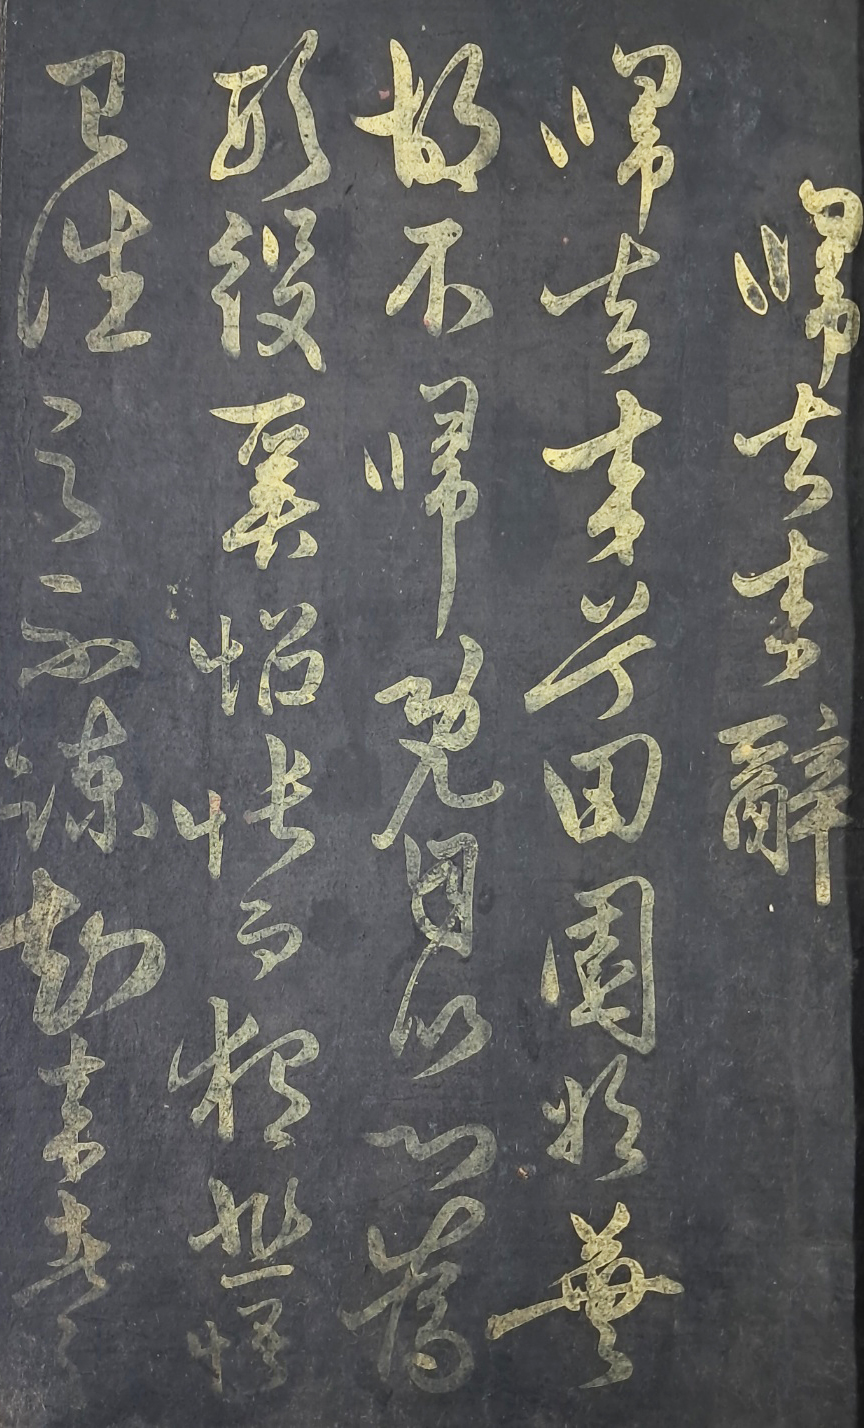 歸去来辭
歸去来兮田園将蕪
胡不歸既自以心爲
形役奚惆悵而獨悲悟
已往之不諫知来者之